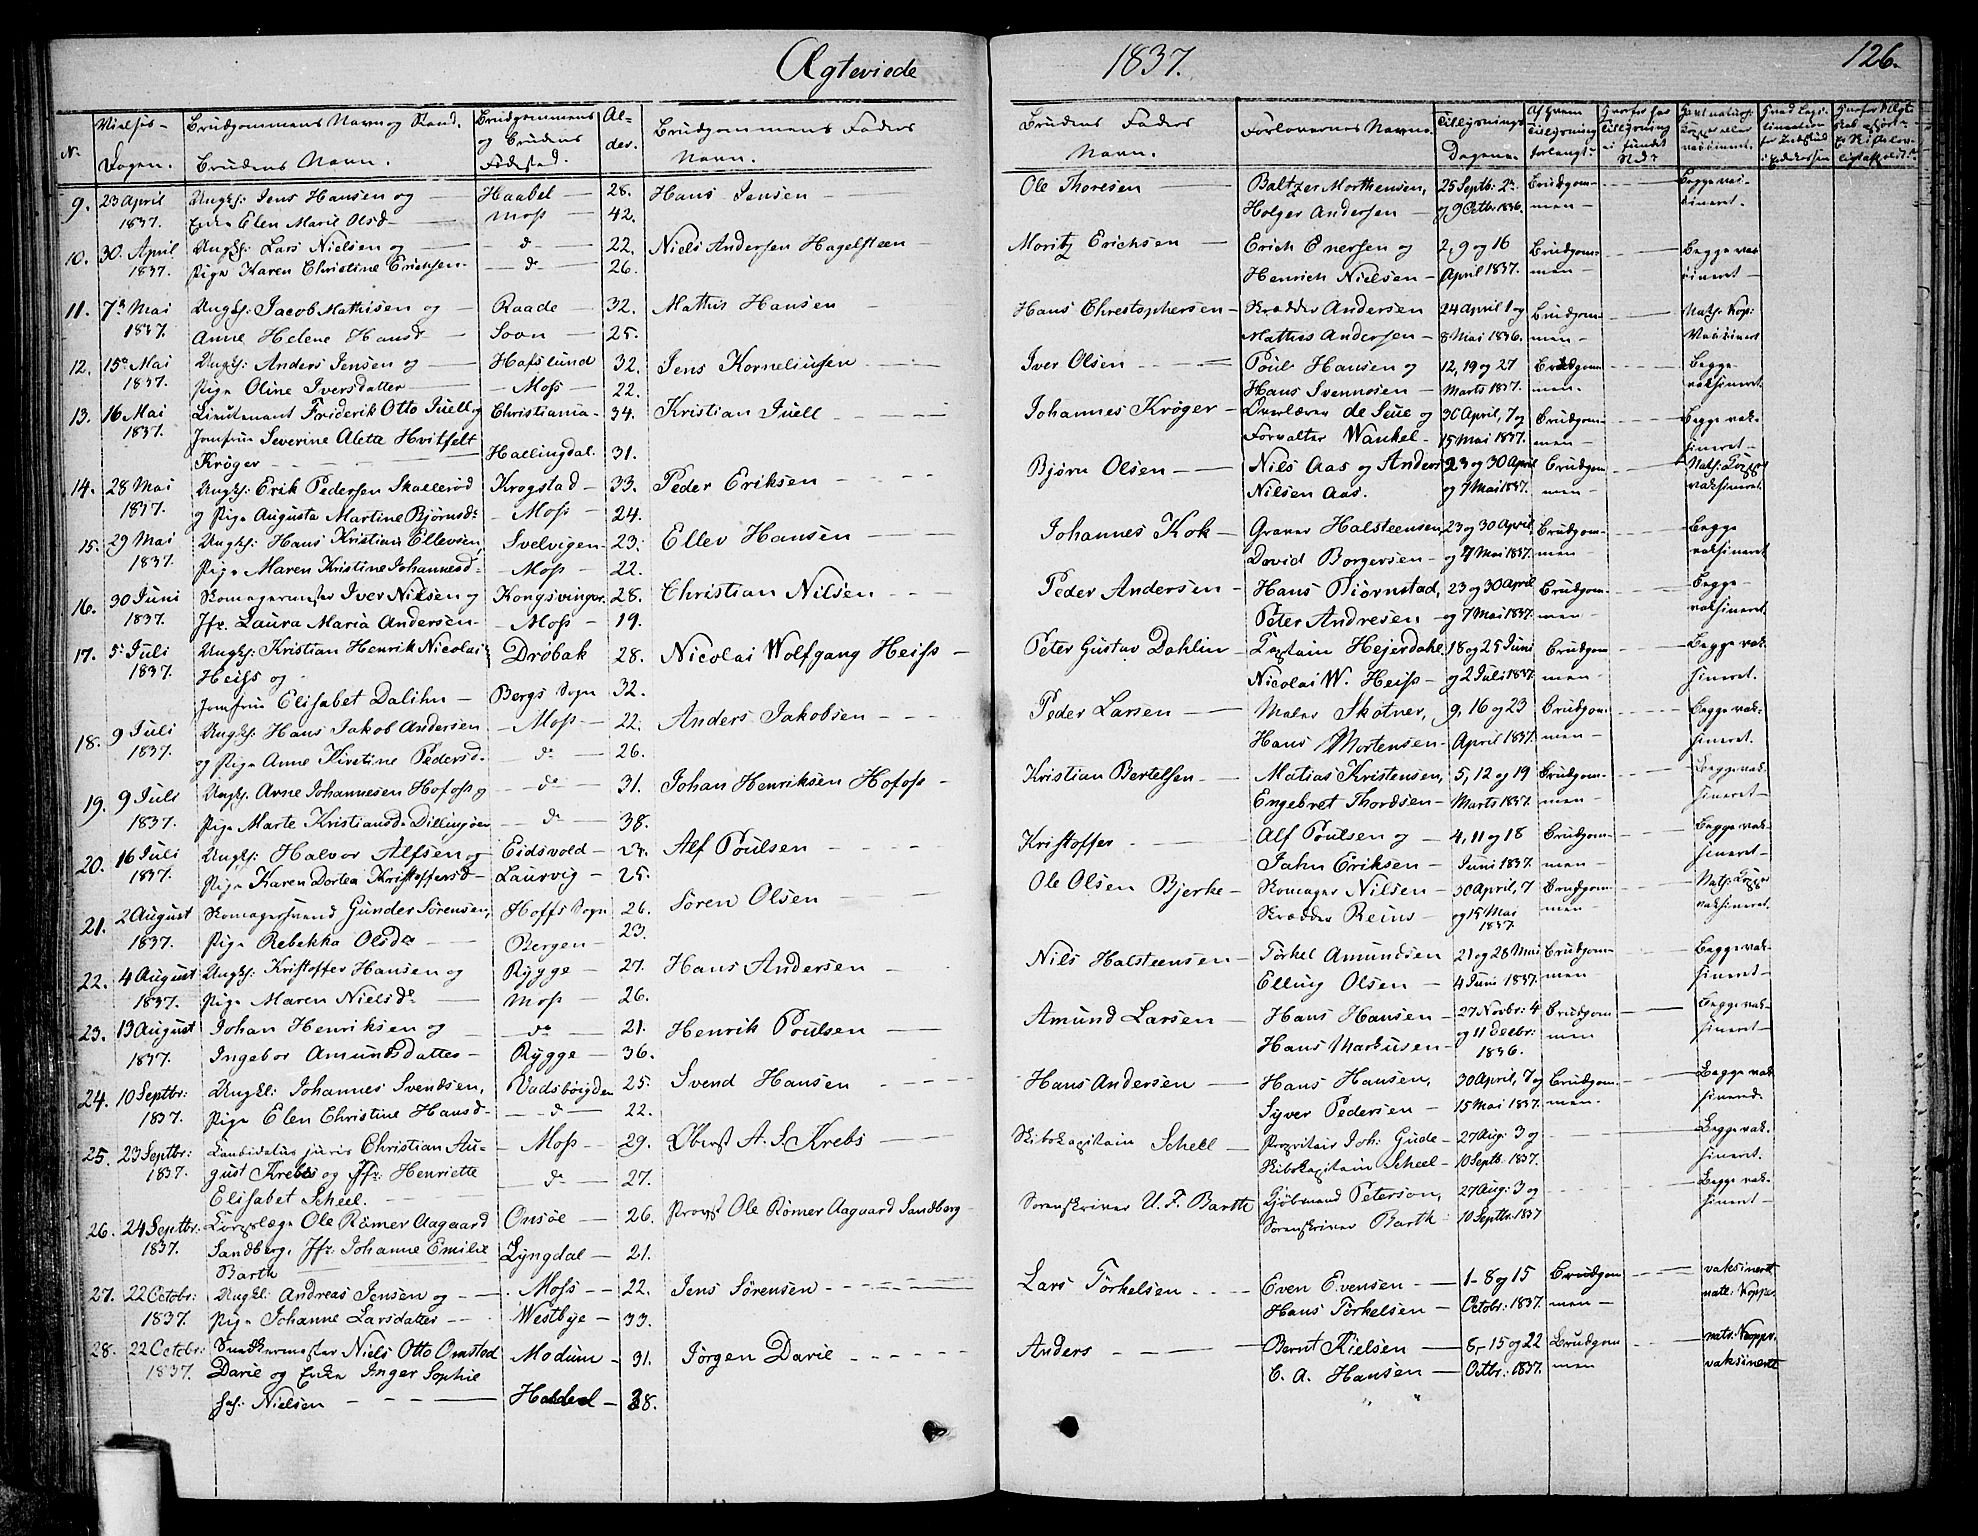 Ægteviede 1837. 126.
No Vielses-Dagen. Brudgommens Navn og Stand. Brudens Navn. Brudgommens og Brudens Fødested. Alder. Brudgommens Faders Navn. Brudens Faders Navn. Forlovernes Navne. Tillysnings Dagene
9. 23 April Ungk: Jens Hansen og Haabel 28. Hans Jensen Ole Thoresen Baltzer Morthensen, 25 Septb: 2 Brudgom- Begge vac-
1837. Enke Elen Marie Olsd Moss 42. Holger Andersen og 9 Octbr. 1836. men cineret.
10. 30 April Ungk: Lars Nielsen og do 22. Niels Andersen Hagelsteen Moritz Erichsen Erich Enersen og 2, 9 og 16 Brudgom- Begge vac-
1837. Pige Karen Christine Ericksen do 26. Henrich Nielsen April 1837. men cineret
11. 7de Mai Ungk: Jacob Mathisen og Raade 32. Mathis Hansen Hans Chrestophersen Skrædder Andersen 24 April 1 og Brudgom- Nath: Kop:
1837. Anne Helene Hansd Soon 25. Mathis Andersen 8 Mai 1836. men Vaccineret
12. 15de Mai Ungk: Anders Jensen og Hafslund 32. Jens Korneliussen Iver Olsen Poul Hansen og 12, 19 og 27 Brudgom- Begge
1837. Pige Oline Iversdatter Moss 22. Hans Svennesen Marts 1837. men vaksineret.
13. 16 Mai Lieutenant Friderik Otto Juell og Christiania 34. Kristian Juell Johannes Krøger Overlærer de Seue og 30 April, 7 og Brudgom- Begge vak-
1837. Jomfrue Severine Aleta Hvitfelt Forvalter Wankel 15 Mai 1837. men sineret
Krøger Hallingdal 31.
14. 28 Mai Ungk: Erik Pedersen Skallerød Krogstad 33. Peder Eriksen Bjørn Olsen Nils Aas og Anders 23 og 30 April Brudgom- Nath: Kopp:
1837. og Pige Augusta Martine Bjørnsd: Moss 24. Nilsen Aas. og 7 Mai 1837. men vaksineret.
15. 29 Mai Ungk: Hans Kristian Ellevsen, Svelvigen 23. Ellev Hansen Johannes Kok Graver Halsteensen 23 og 30 April Brudgom- Begge
1837. Pige Maren Kristine Johannesd: Moss 22. David Borgersen og 7 Mai 1837. men vaksineret
16. 30 Juni Skomagermester Iver Nielsen og Kongsvinger 28. Christian Nilsen Peder Andersen Hans Biørnstad, 23 og 30 April Brudgom- Begge
1837. Jfr. Laura Maria Andersen Moss 19. Peter Andresen og 7 Mai 1837. men vaksineret.
17. 5 Juli Ungk: Kristian Henrik Nicolai Drøbak 28. Nicolai Wolfgang Heiss Peter Gustav Dahlin Captain Hejerdahl 18 og 25 Juni Brudgom- Begge vak-
1837. Heiss og Nicolai W. Heiss og 2 Juli 1837 men sineret.
Jomfrue Elisabet Dalihn Bergs Sogn 32.
18. 9 Juli Ungk: Hans Jakob Andersen Moss 22. Anders Jakobsen Peder Larsen Maler Skotner, 9, 16 og 23 Brudgom- Begge vak-
1837. og Pige Anne Kirstine Pedersd do 26. Hans Mortensen April 1837. men sineret.
19. 9 Juli Ungk: Arne Johannesen Hofoss og do 31. Johan Henriksen Hofoss Kristian Bertelsen Matias Kristensen, 5, 12 og 19 Brudgom- Begge vak-
1837. Pige Marte Kristiansd: Dillingøen do 38. Engebret Thordsen Marts 1837. men sineret
20. 16 Juli Ungk: Halvor Alfsen og Eidsvold Alf Poulsen Kristoffer Alf Poulsen og 4, 11 og 18 Brudgom- Begge vak-
1837. Pige Karen Dortea Kristoffersd Laurvig 25. Jahn Eriksen Juni 1837. men sineret.
21. 2 August Skomagersvend Gunder Sørensen, Hoffs Sogn 26. Søren Olsen Ole Olsen Bjerke Skomager Nilsen 30 April, 7 Brudgom- Nath: Kopper
1837. Pige Rebekka Olsd: Bergen 23. Skrædder Reins og 15 Mai 1837. men vaksineret.
22. 4 August Ungk: Kristoffer Hansen og Rygge 27. Hans Andersen Nils Halsteensen Torkel Amundsen 21 og 28 Mai Brudgom- Begge vak-
1837. Pige Maren Nielsd: Moss 26. Elling Olsen 4 Juni 1837. men sineret
23. 13 August Johan Henriksen og do 21. Henrik Poulsen Amund Larsen Hans Hansen 27 Novbr: 4 Brudgom- Begge vak-
1837. Ingebor Amundsdatter Rygge 36. Hans Markusen og 11 Decbr: 1836. men sineret
24. 10 Septbr: Ungkl: Johannes Svendsen, Vadsbøigden 25. Svend Hansen Hans Andersen Hans Hansen, 30 April, 7 og Brudgom- Begge vak-
1837. Pige Elen Christine Hansd: d 22. Syver Pedersen 15 Mai 1837. men. sinered.
25. 23 Septbr: Candidatus juris Christian Au- Moss 29. Øberst A. S. Krebs Skibskapitain Scheel Propritair Joh: Gude 27 Aug: 3 og Begge vak-
1837. gust Krebs og Jfr: Henriette do 27. Skibskapitain Scheel 10 Septb. 1837. sineret.
Elisabet Scheel.
26. 24 Septbr: Korpslæge Ole Rømer Aagaard Onsøe 26. Provst Ole Rømer Aagaard Sandberg Sorenskriver U. F. Barth Kjøbmand Peterson, 27 Aug: 3 og Begge vak-
1837. Sandberg. Jfr: Johanne Emilie Lyngdal 21. Sorenskriver Barth 10 Septbr: 1837 sineret
Barth
27. 22 Octobr: Ungkl: Andreas Jensen og Moss 22. Jens Sørensen Lars Torkelsen Even Evensen 1-8 og 15 Brudgom- vaksinerett
1837. Pige Johanne Larsdatter Westbye 33. Hans Torkelsen Octobr: 1837. men natl: Kopper
28. 22 Octobr: Snedkermester Niels Otto Omstad Modum 31. Jørgen Darie Anders Bernt Nielsen 8,-15 og 22 Brudgom- nat: Kopper
1837. Darie og Enke Inger Sophie C. A. Hansen Octbr: 1837. men vaksinerett
f: Nielsen Haldend 38.